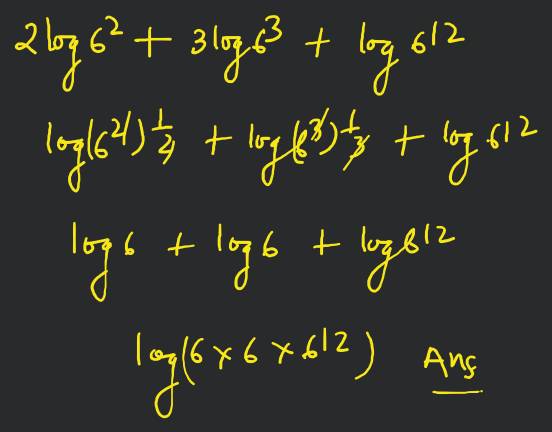 2 log 6² + 3 log 6³ + log 612
log(6²)^1/2 + log(6³)^1/3 + log 612
log 6 + log 6 + log 612
log(6 × 6 × 612) Ans